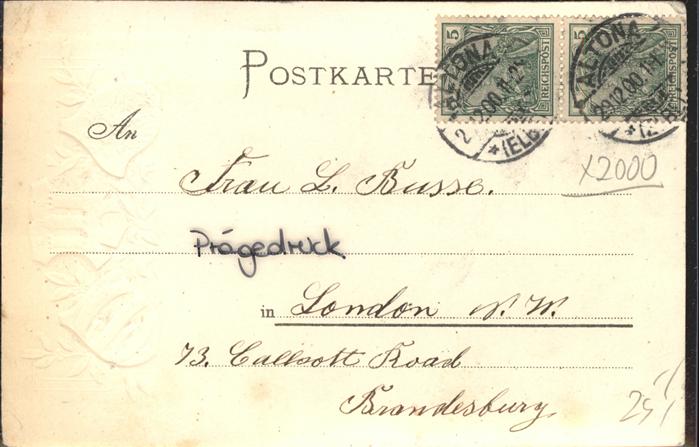 5
REICHSPOST
5
REICHSPOST
ALTONA
29.12.00.11-12
*(ELBE)
ALTONA
29.12.00.11-1
*(ELBE
POSTKARTE
x2000
An
Frau L. Busse.
Prägedruck
in London N.W.
73. Callsott Road
Brandesbury